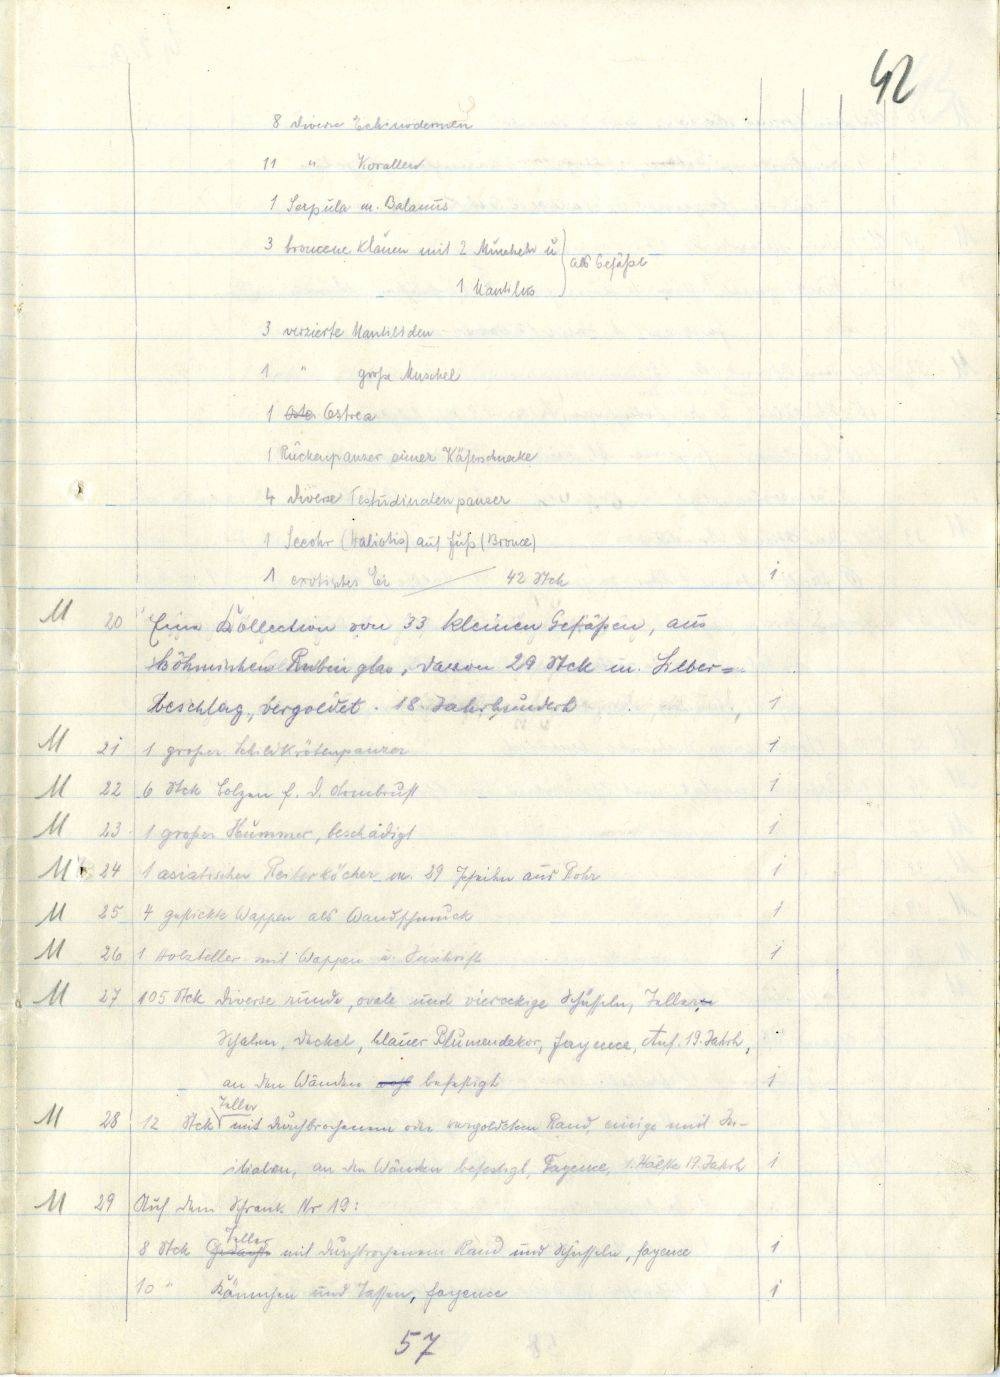 42
8 diverse Echinodermen
11 " Korallen
1 Serpula m. Balanus
3 broncene Klauen mit 2 Muscheln u
als Gefäße
1 Nautilus
3 verzierte Nautiliden
1 " große Muschel
1 Oste Ostrea
1 Rückenpanzer einer Käferschnecke
4 diverse Testudinatenpanzer
1 Seeohr (Haliotis) auf Fuß (Bronce)
1 exotisches Ei 42 Stck 1
M 20 Eine Kollection von 33 kleinen Gefäßen, aus
böhmischen Rubinglas, davon 29 Stck m. Silber=
beschlag, vergoldet. 18. Jahrhundert 1
M 21 1 großer Schildkrötenpanzer 1
M 22 6 Stck Bolzen f. d. Armbrust 1
M 23 1 großer Hummer, beschädigt 1
M 24 1 asiatischer Reiterköcher m. 29 Pfeilen aus Rohr 1
M 25 4 gestickte Wappen als Wandschmuck 1
M 26 1 Holzteller mit Wappen u. Inschrift 1
M 27 105 Stck diverse runde, ovale und viereckige Schüsseln, Teller,
Schalen, Deckel, blauer Blumendekor, fayence, Anf. 19. Jahrh,
an den Wänden befestigt 1
Teller
M 28 12 Stck mit durchbrochenem oder vergoldetem Rand, einige mit In-
itialen, an den Wänden befestigt, Fayence, 1. Hälfte 19. Jahrh 1
M 29 Auf dem Schrank Nr 19:
Teller
8 Stck mit durchbrochenem Rand und Schüsseln, fayence 1
10 " Kännchen und Tassen, fayence 1
57